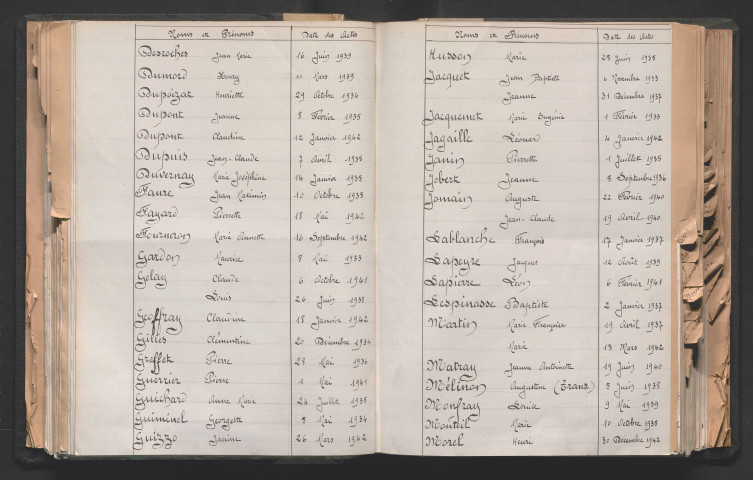 Noms et Prénoms Date des Actes
Desroches Jean Marie 16 Juin 1939
Dumord Henry 11 Mars 1939
Dupoizat Henriette 29 Octobre 1934
Dupont Jeanne 8 Février 1935
Dupont Claudine 12 Janvier 1942
Dupuis Jean-Claude 7 Avril 1935
Duvernay Marie Joséphine 14 Janvier 1938
Faure Jean Maximin 10 Octobre 1938
Fayard Pierrette 18 Mai 1942
Fourneron Marie Annette 16 Septembre 1942
Gardon Maurice 8 Mai 1933
Gelay Claude 6 Octobre 1941
Louis 26 Juin 1938
Geoffray Claudine 18 Janvier 1942
Gilles Clémentine 20 Décembre 1934
Greffet Pierre 28 Mai 1936
Guerrier Pierre 1 Mai 1941
Guichard Anne Marie 24 Juillet 1935
Guiminel Georgette 8 Mai 1934
Guizzo Janine 26 Mars 1942
Noms et Prénoms Date des Actes
Husson Marie 28 Juin 1938
Jacquet Jean Baptiste 6 Novembre 1933
Jeanne 31 Décembre 1937
Jacquemet Marie Eugénie 1 Février 1933
Jagaille Léonard 4 Janvier 1942
Janin Pierrette 1 Juillet 1935
Jobert Jeanne 8 Septembre 1936
Jomain Auguste 22 Février 1940
Jean-Claude 19 Avril 1940
Lablanche François 17 Janvier 1937
Lapeyre Jacques 12 Août 1939
Lapierre Léon 6 Février 1941
Lespinasse Baptiste 2 Janvier 1937
Martin Marie Françoise 19 Avril 1937
Marie 13 Mars 1942
Matray Jeanne Antoinette 19 Juin 1940
Mélinon Augustin (Trans.) 8 Juin 1938
Monfray Louise 9 Mai 1939
Monteil Marie 10 Octobre 1938
Morel Henri 30 Décembre 1942